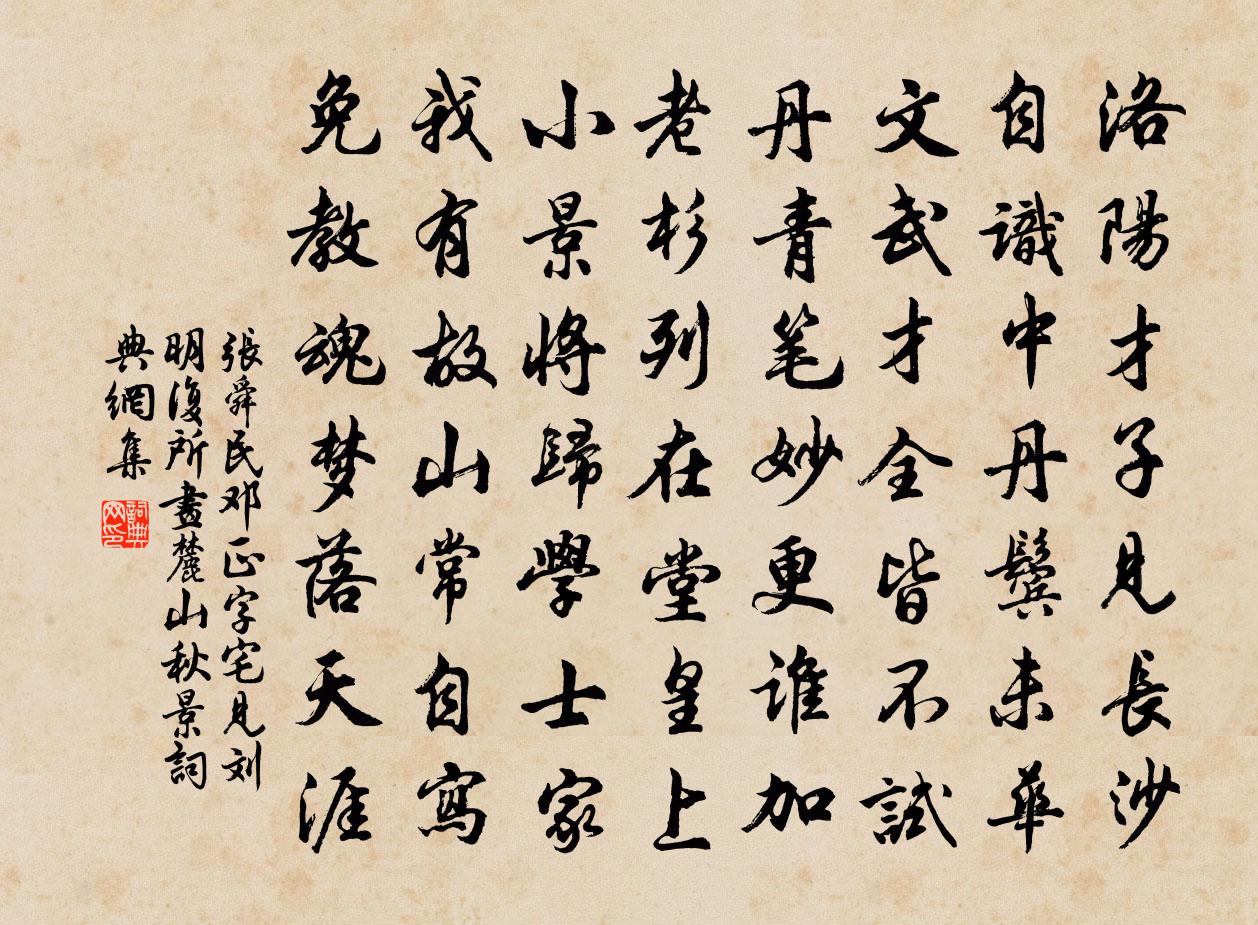 洛陽才子見長沙
自識中丹鬢未華
文武才全皆不試
丹青笔妙更誰加
老杉列在堂皇上
小景將歸學士家
我有故山常自寫
免教魂梦落天涯
張舜民邓正字宅見刘
明復所畫麓山秋景詞
典網集
詞典
网印